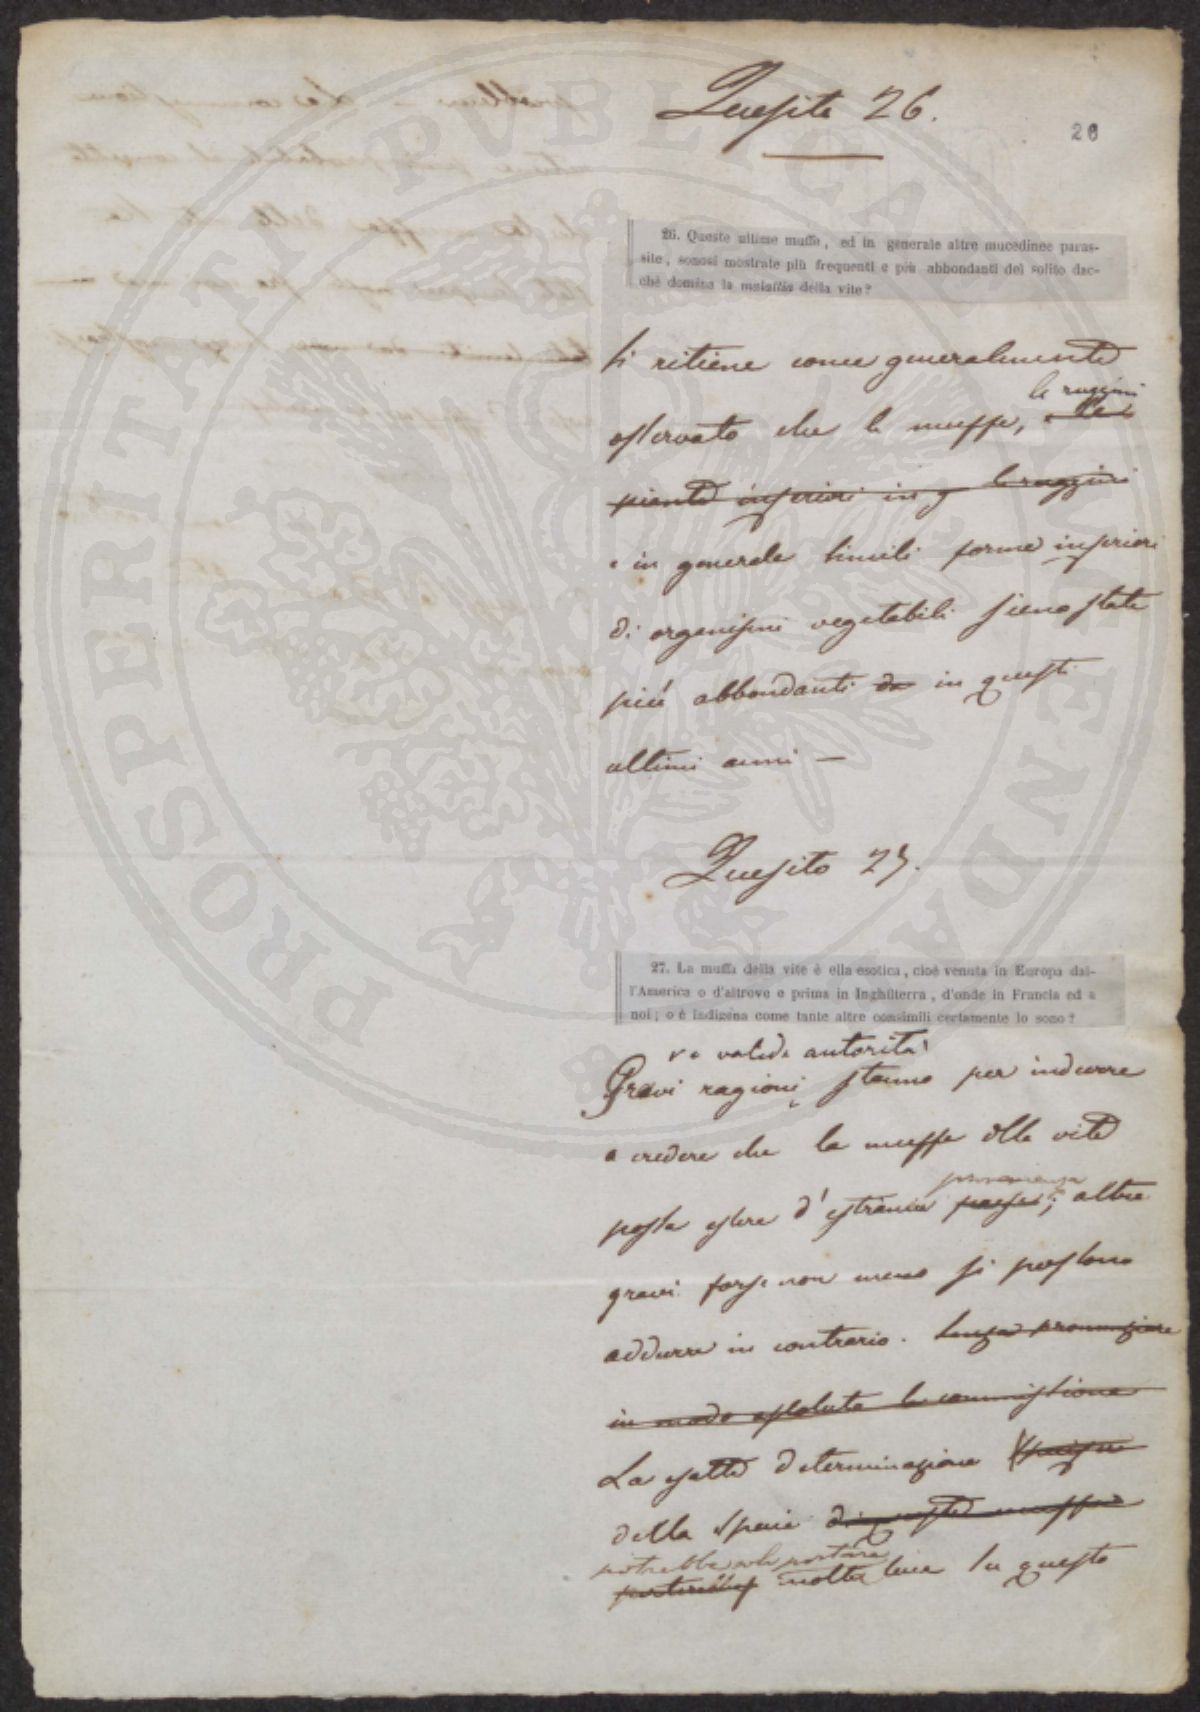 Quesito 26.
28
26. Queste ultime muffe, ed in generale altre mucedinee paras-
site, sonosi mostrate più frequenti e più abbondanti del solito dac-
chè domina la malattia della vite?
Si ritiene come generalmente
le ruggini
osservato che le muffe, le
piante inferiori in g le ruggini
e in generale simili forme inferiori
di organismi vegetabili sieno state
più abbondanti da in questi
ultimi anni —
Quesito 27.
27. La muffa della vite è ella esotica, cioè venuta in Europa dal-
l'America o d'altrove e prima in Inghilterra, d'onde in Francia ed a
noi; o è indigena come tante altre consimili certamente lo sono?
e valide autorità
Gravi ragioni stanno per indurre
a credere che la muffa della vite
provenienza
possa essere d'estrania paese; altre
gravi forse non meno si possono
addurre in contrario. Senza pronunziare
in modo assoluto la commissione
La esatta determinazione
della specie di questa muffa
potrebbe sola portare
porterebbe molta luce su questo
PROSPERITATI PVBLICAE AVGENDAE